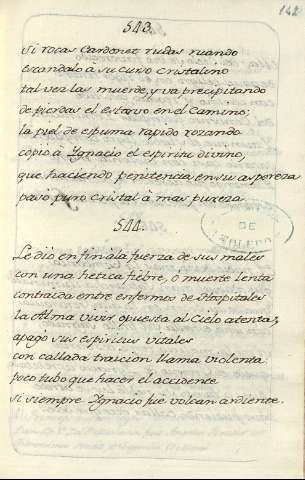 142
543.
Si rocas Cardonet rudas quando
escandalo à su curso cristalino
tal vez las muerde, y va precipitando
de piedras el estorvo en el Camino;
la piel de espuma rapido rozando
copiò à Ygnacio el espiritu divino,
que haciendo penitencia en su aspereza
pasò puro cristal à mas pureza.
DE
TOLEDO
544.
Le diò en fin a la fuerza de sus males
con una hetica fiebre, ò muerte lenta
contraida entre enfermos de Hospitales
la Alma vivir, opuesta al Cielo atenta;
apagò sus espiritus vitales
con callada traicion llama violenta
poco tubo que hacer el accidente
si siempre Ygnacio fue volcan ardiente.